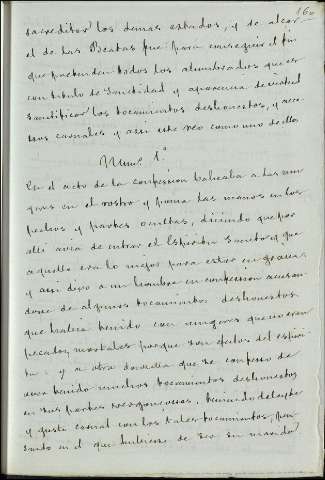 160
sacreditar los demas estados, y de alcar
el de las Beatas que para conseguir el fin
que pretenden todos los alumbrados que es
con titulo de Santidad y aparencia de virtud
santificar los tocamientos deshonestos, y acce
sos carnales y assi este reo como uno de ellos
Num.º 1.º
En el acto de la confession baheaba a las mu
geres en el rostro y ponia las manos en los
pechos y partes ocultas, diciendo que por
alli avia de entrar el Espiritu Santo y que
aquello era lo mejor para estar en gracia,
y assi dixo a un hombre en confession acusan
dose de algunos tocamientos deshonestos
que habia tenido con mugeres que no eran
pecados mortales porque son efectos del espiri
tu. y a otra doncella que se confeso de
aver tenido muchos tocamientos deshonestos
en sus partes vergonçosas, teniendo deleyte
y gusto carnal con los tales tocamientos, pen
sando en el que hubiesse de ser su marido